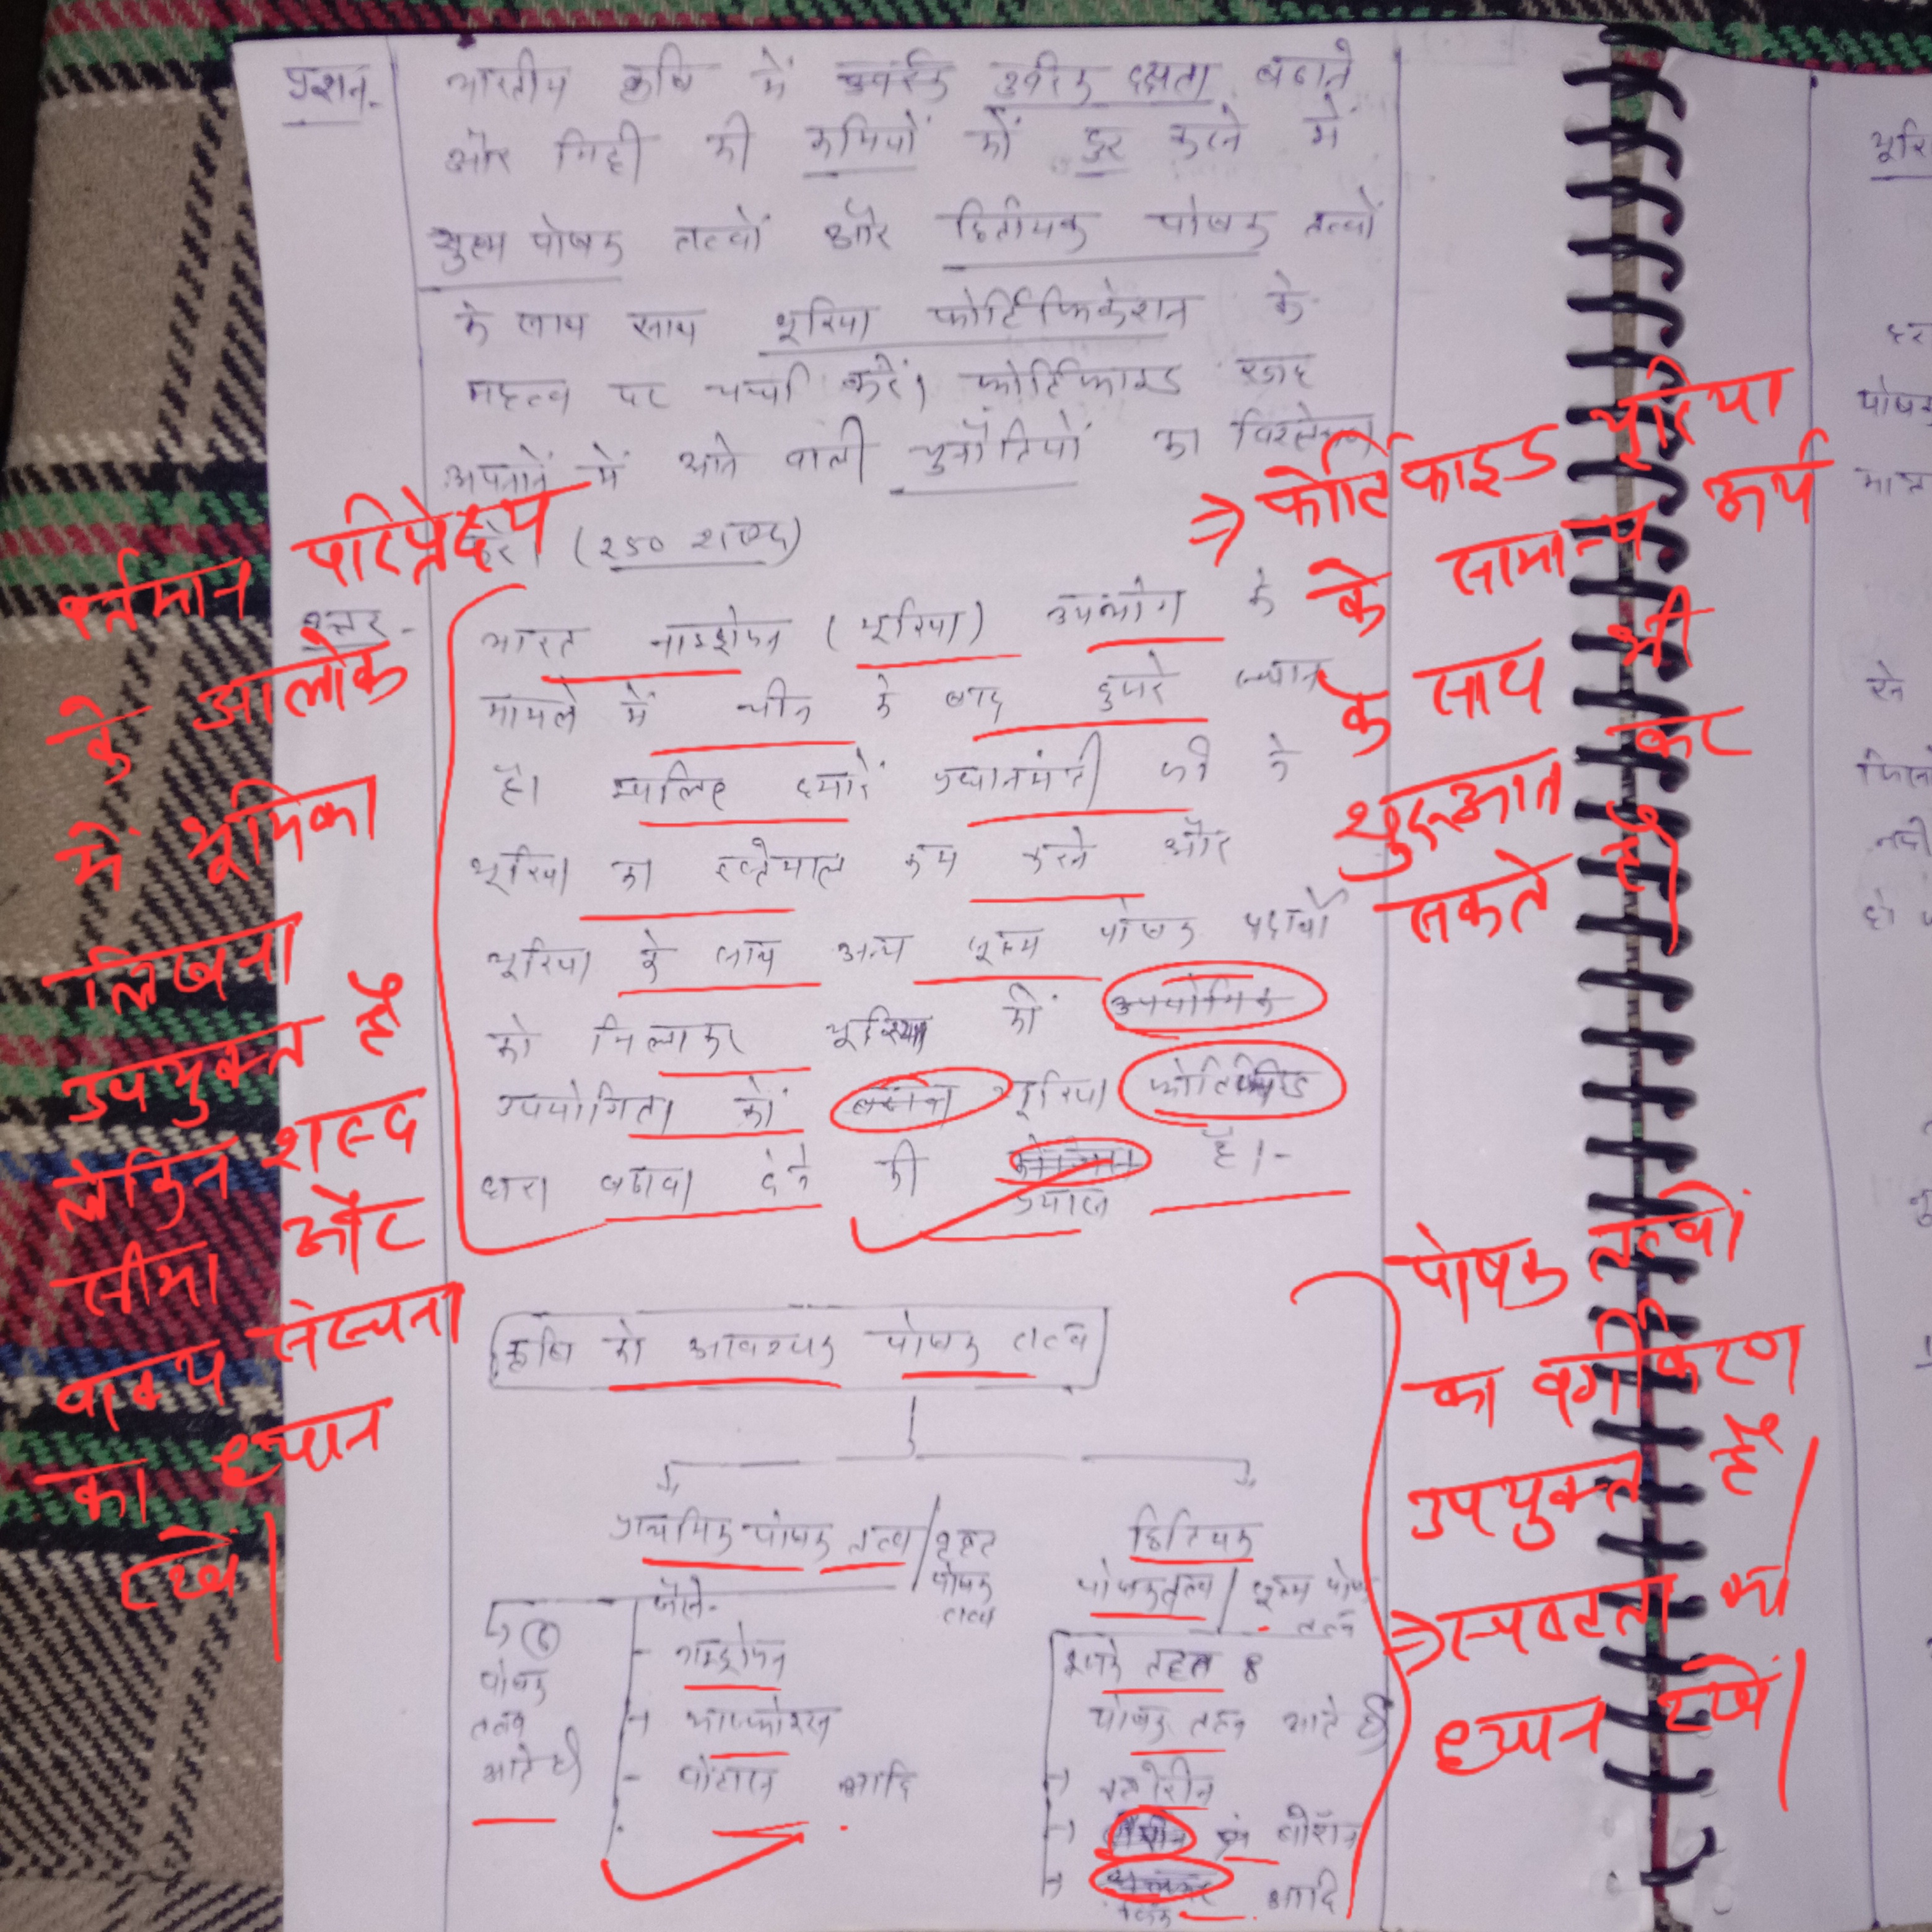 प्रशन-
भारतीय कृषि में उर्वरक दक्षता बढाने
और मिट्टी की कमियों कों दुर करने में
सुक्ष्म पोषक तत्वों और द्वितीयक पोषक तत्वों
के साथ साथ यूरिया फोर्टिफिकेशन के
महत्व पर चर्चा करें। फोर्टिफाइड
अपनाने में आने वाली चुनौतियों का विश्लेषण
करें। (250 शब्द)
उत्तर-
भारत नाइट्रोजन (यूरिया) उपभोग के
मामले में चीन के बाद दुसरे स्थान
है। इसलिए हमारे प्रधानमंत्री जी ने
यूरिया का इस्तेमाल कम करने और
यूरिया के साथ अन्य सूक्ष्म पोषक पदार्थो
को मिलाकर यूरिया की
उपयोगिता कों यूरिया
द्वारा बढावा देने की प्रयास है।-
कृषि को आवश्यक पोषक तत्व
प्राथमिक पोषक तत्व/वृहत पोषक तत्व
जैसे-
6 पोषक तत्व आते है
- नाइट्रोजन
→ फास्फोरस
- पोटास आदि
द्वितियक
पोषक तत्व / सूक्ष्म पोषक तत्व
इसके तहत 8
पोषक तत्व आते है
→ क्लोरीन
→ बोरॉन
→ आदि
वर्तमान परिप्रेक्ष्य
के आलोक
में भूमिका
लिखना
उपयुक्त है
लेकिन शब्द
सीमा और
वाक्य संरचना
का ध्यान
रखें।
⇒ फोर्टिफाइड यूरिया
के सामान्य अर्थ
के साथ भी
शुरूआत कर
सकते हैं।
पोषक तत्वों
का वर्गीकरण
उपयुक्त है।
⇒ स्पष्टता का
ध्यान रखें।